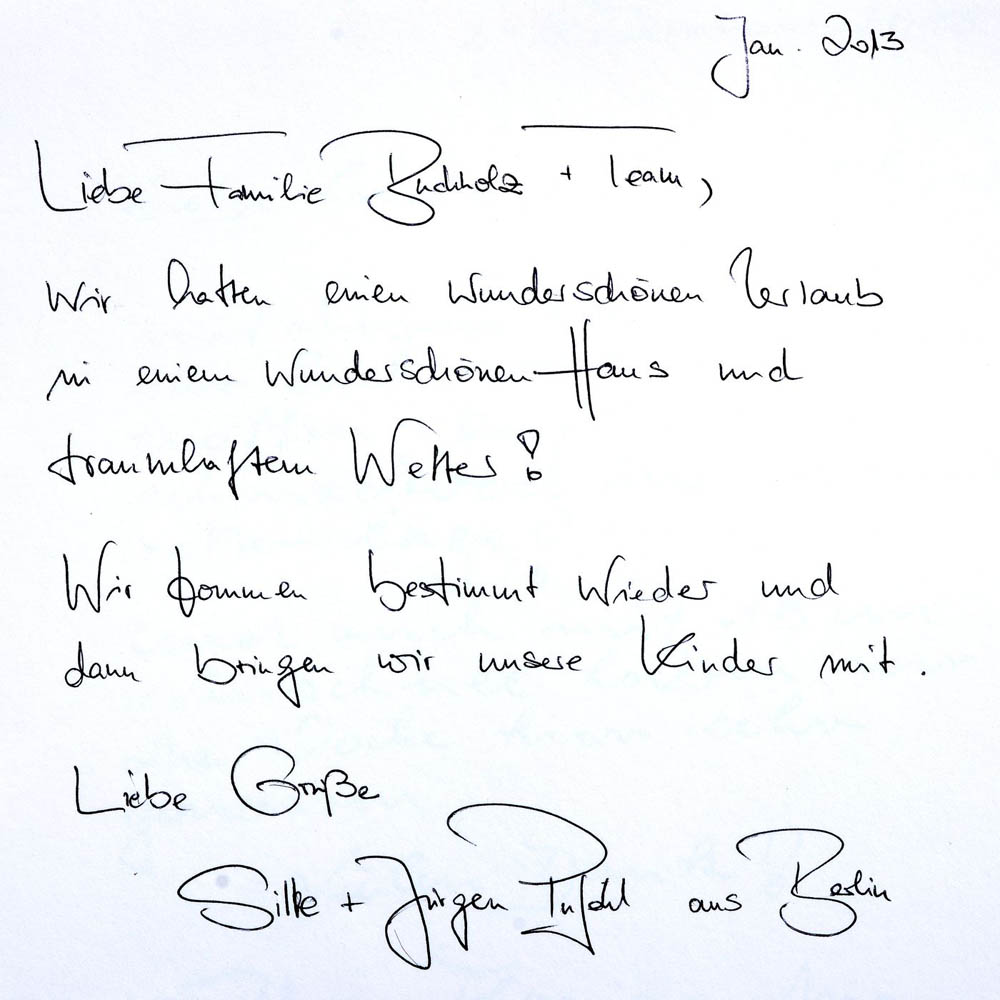 Jan. 2013
Liebe Familie Buchholz + Team,
Wir hatten einen wunderschönen Urlaub
in einem wunderschönen Haus und
traumhaftem Wetter!
Wir kommen bestimmt wieder und
dann bringen wir unsere Kinder mit.
Liebe Grüße
Silke + Jürgen aus Berlin